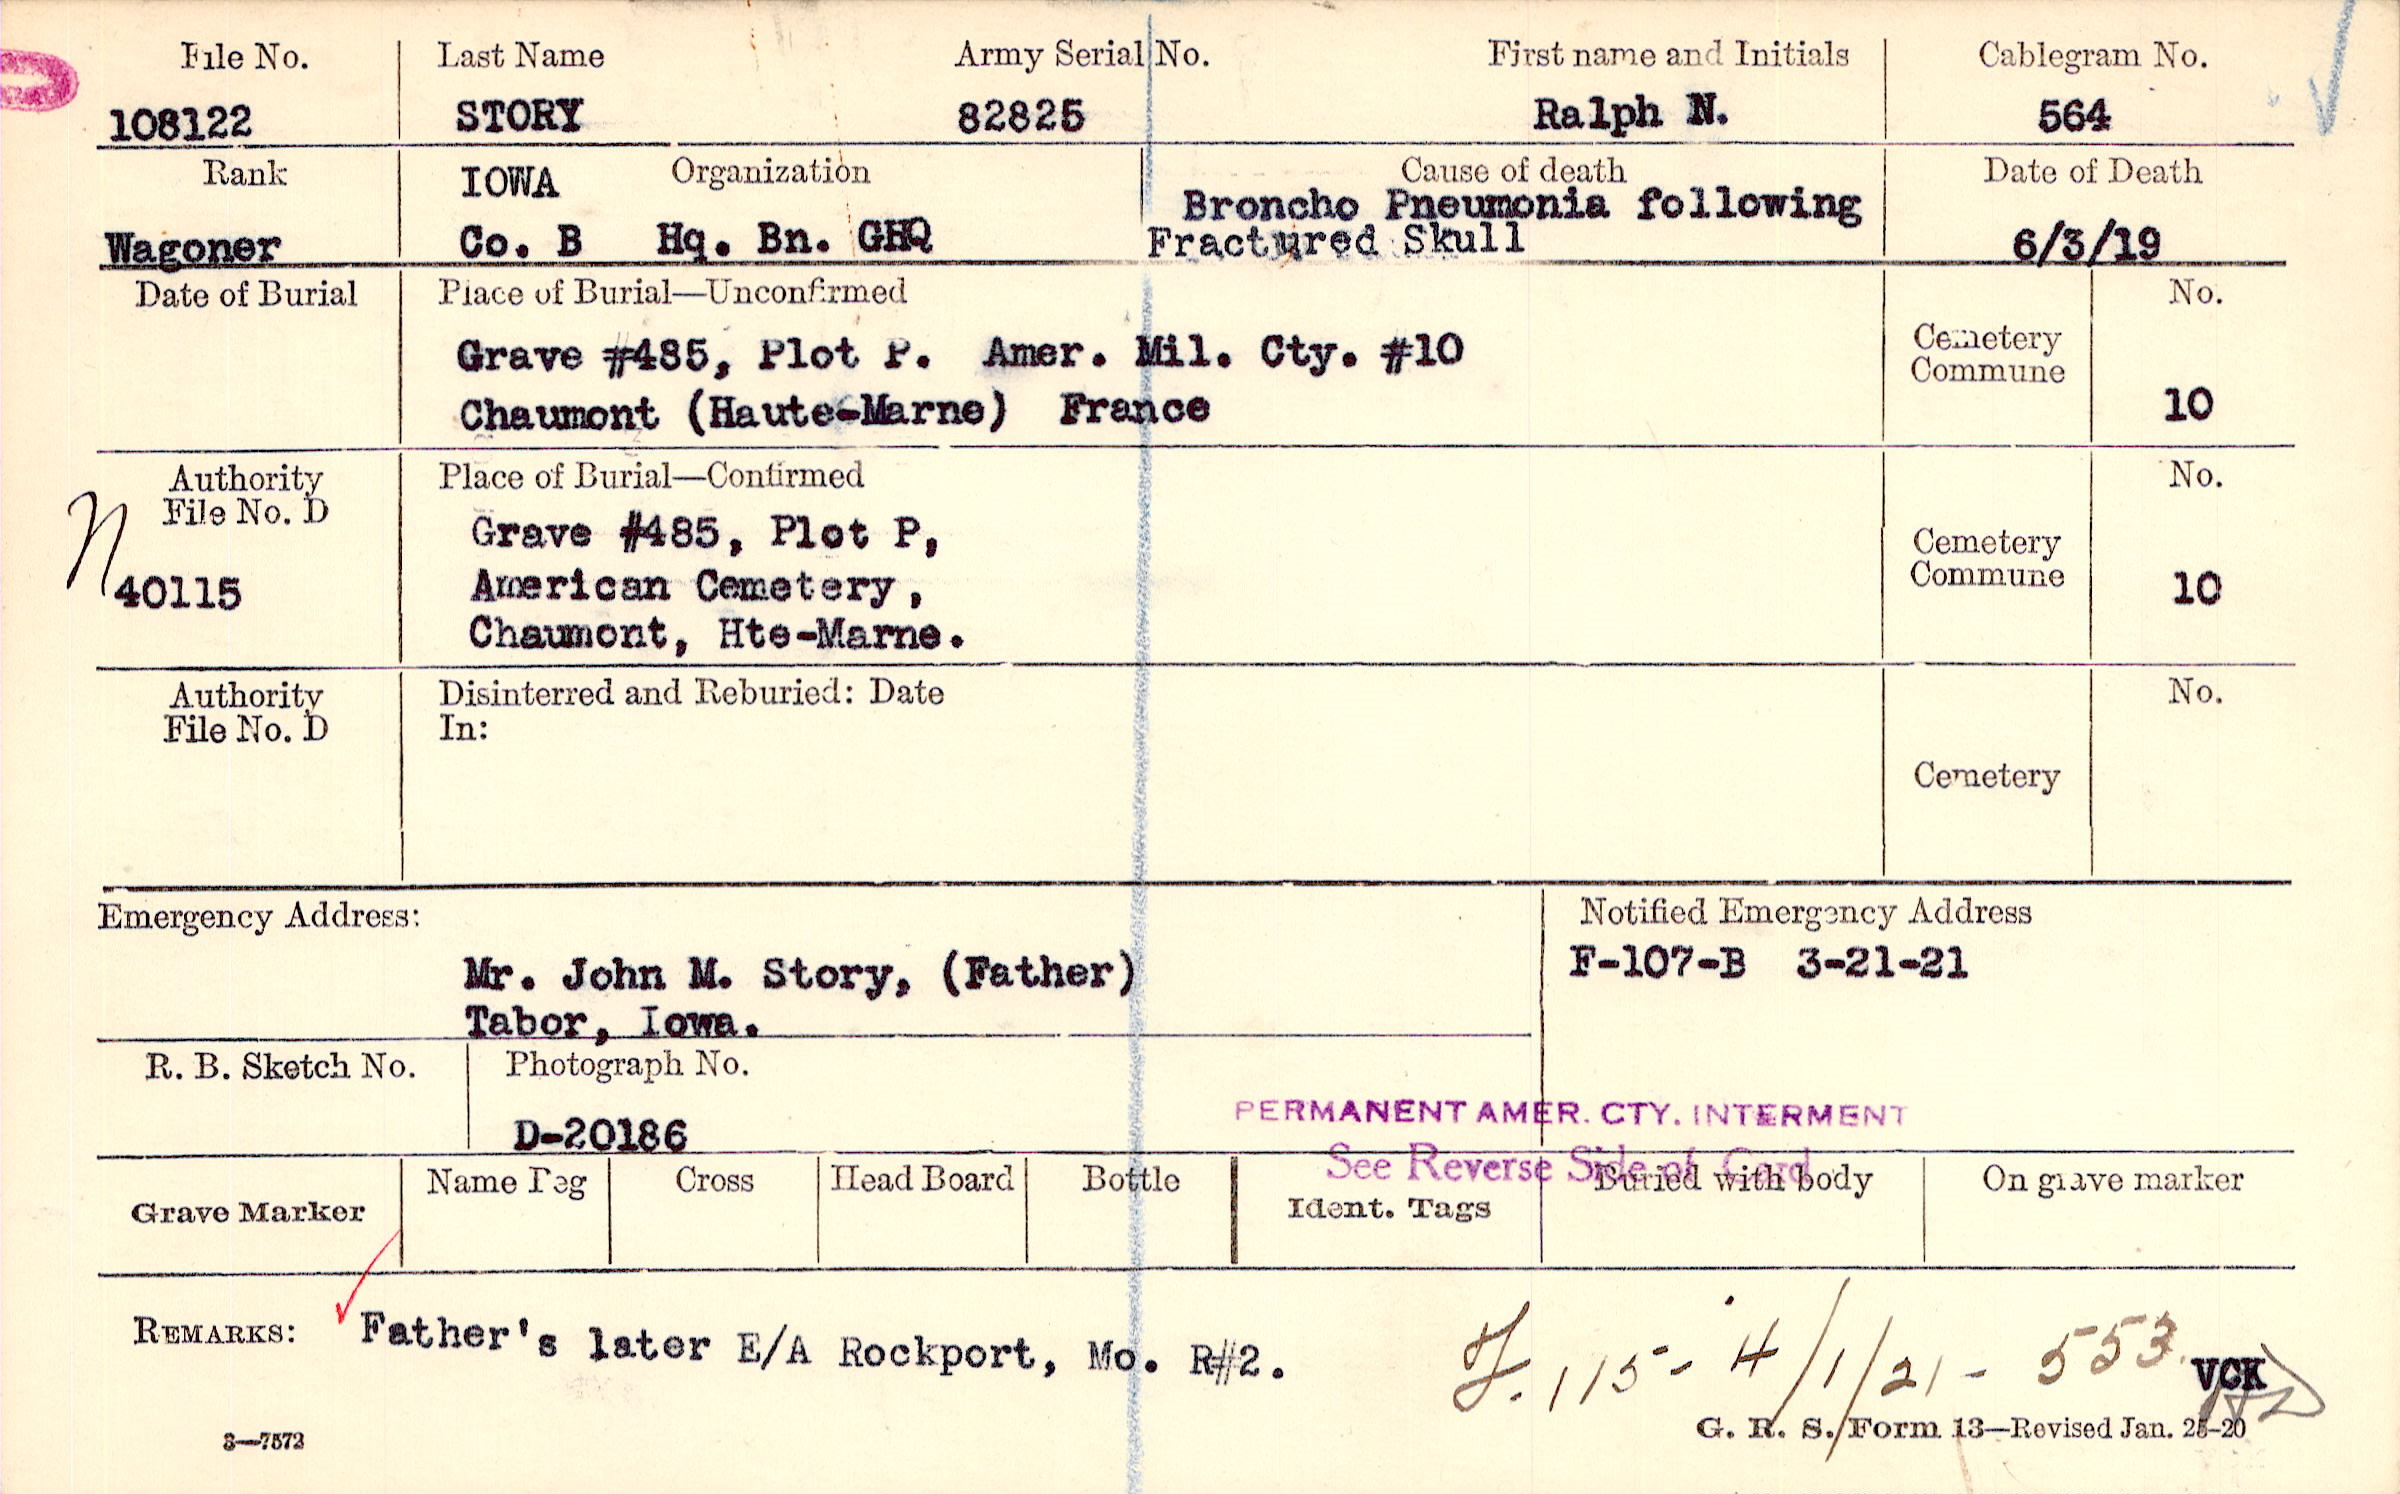 File No. Last Name Army Serial No. First name and Initials Cablegram No.
108122 STORY 82825 Ralph N. 564
Rank IOWA Organization Cause of death Date of Death
Wagoner Co. B Hq. Bn. GHQ Broncho Pneumonia following
Fractured Skull 6/3/19
Date of Burial Place of Burial—Unconfirmed No.
Grave #485, Plot P. Amer. Mil. Cty. #10 Cemetery
Commune
Chaumont (Haute-Marne) France 10
Authority Place of Burial—Confirmed No.
File No. D
N
Grave #485, Plot P,
Cemetery
40115 American Cemetery, Commune 10
Chaumont, Hte-Marne.
Authority Disinterred and Reburied: Date No.
File No. D In:
Cemetery
Emergency Address: Notified Emergency Address
Mr. John M. Story, (Father) F-107-B 3-21-21
Tabor, Iowa.
R. B. Sketch No. Photograph No.
D-20186
PERMANENT AMER. CTY. INTERMENT
See Reverse Side of Card
Grave Marker Name Peg Cross Head Board Bottle Ident. Tags Buried with body On grave marker
REMARKS: Father's later E/A Rockport, Mo. R#2.
F. 115 - 4/1/21 - 553. VCK
3—7573 G. R. S. Form 13—Revised Jan. 25-20